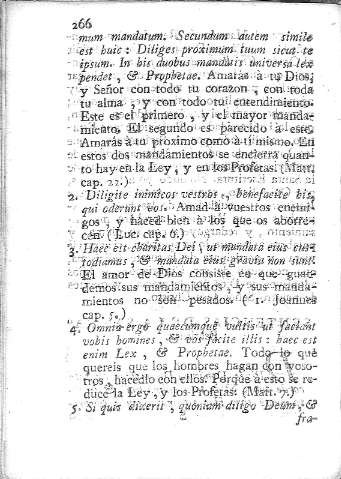 266
mum mandatum. Secundum autem simile
est huic: Diliges proximum tuum sicut te
ipsum. In his duobus mandatis universa lex
pendet, & Prophetae. Amarás à tu Dios,
y Señor con todo tu corazon, con toda
tu alma, y con todo tu entendimiento.
Este es el primero, y el mayor manda-
miento. El segundo es parecido à este.
Amarás à tu proximo como à ti mismo. En
estos dos mandamientos se encierra quan-
to hay en la Ley, y en los Profetas. (Matt.
cap. 22.)
2. Diligite inimicos vestros, benefacite his,
qui oderunt vos. Amad à vuestros enemi-
gos, y haced bien à los que os aborre-
cen (Luc. cap. 6.)
3. Haec est charitas Dei, ut mandata eius cus-
todiamus, & mandata eius gravia non sunt.
El amor de Dios consiste en que guar-
demos sus mandamientos, y sus manda-
mientos no son pesados. (1. Joannes
cap. 5.)
4. Omnia ergo quaecumque vultis ut faciant
vobis homines, & vos facite illis: haec est
enim Lex, & Prophetae. Todo lo que
quereis que los hombres hagan con voso-
tros, hacedlo con ellos. Porque à esto se re-
duce la Ley, y los Profetas. (Matt. 7.)
5. Si quis dixerit, quoniam diligo Deum, &
fra-